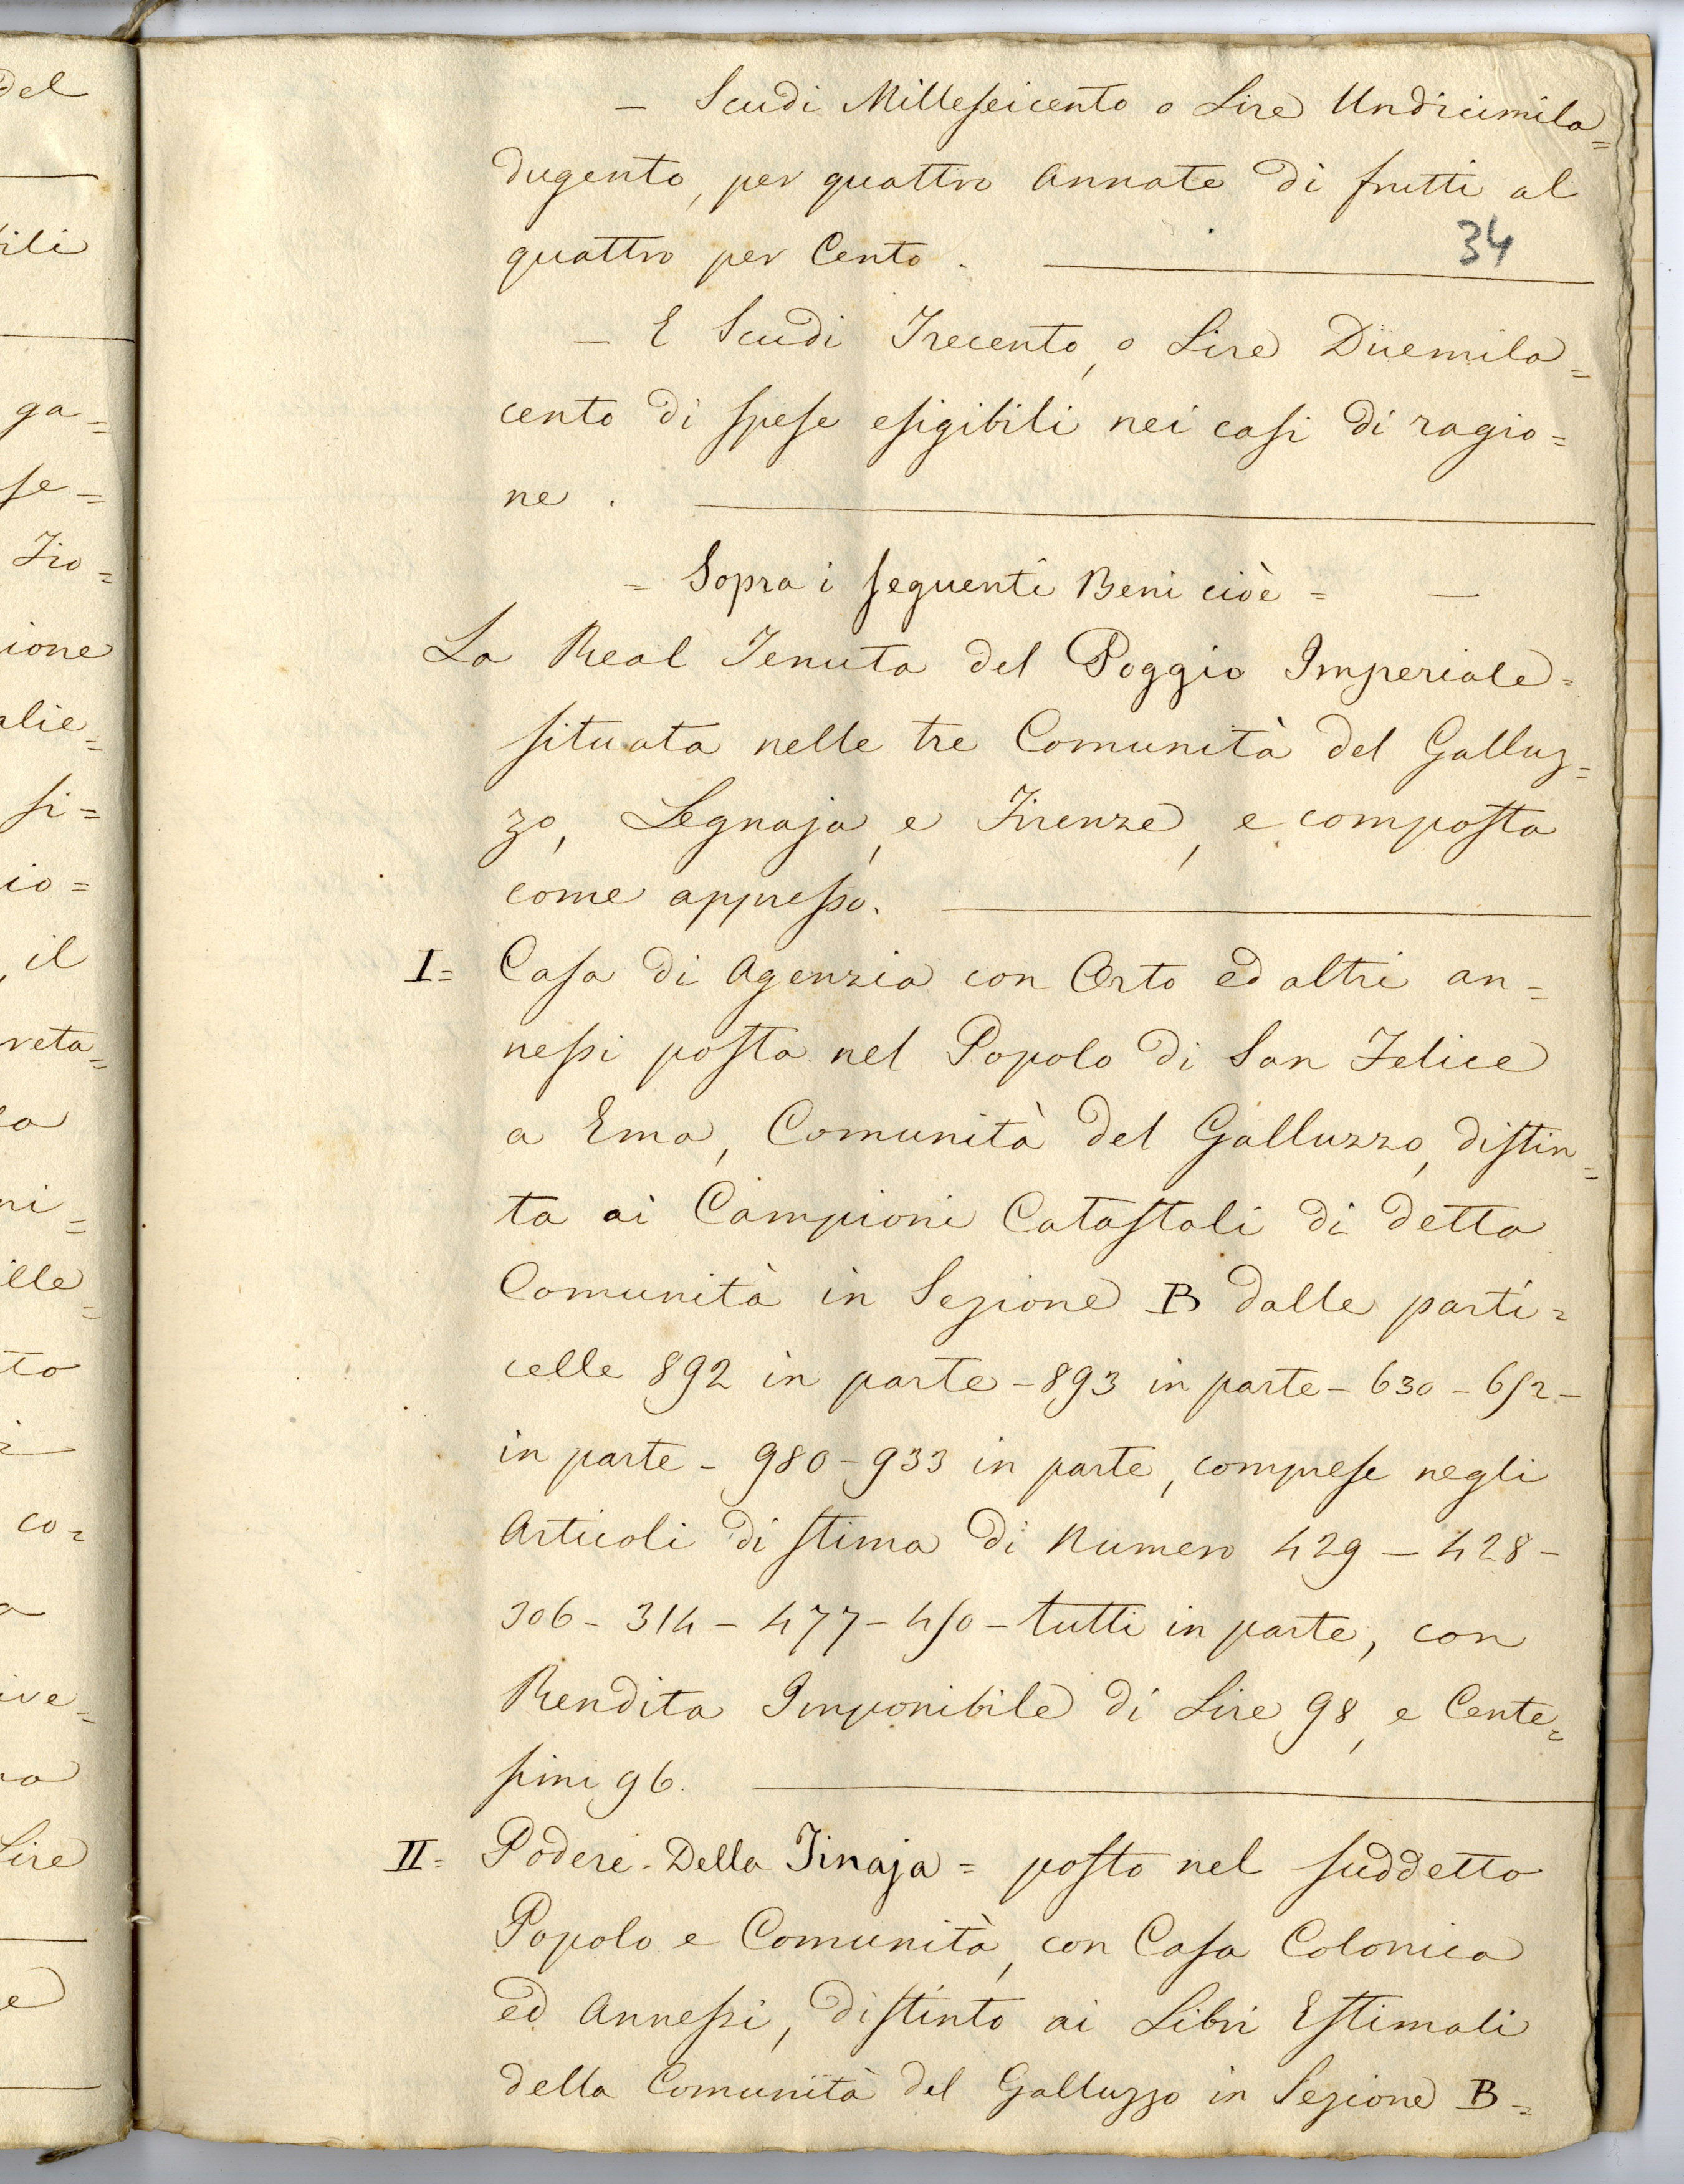 del
ili
ga=
se=
Fio=
ione
alie=
si=
io=
il
reta=
ni=
ille=
to
co=
ive=
Lire
e
— Scudi Milleseicento o Lire Undicimila=
dugento, per quattro Annate di frutti al
quattro per Cento.
34
— E Scudi Trecento, o Lire Duemila=
cento di spese esigibili nei casi di ragio=
ne.
= Sopra i seguenti Beni cioè = —
La Real Tenuta del Poggio Imperiale=
situata nelle tre Comunità del Galluz=
zo, Legnaja, e Firenze, e composta
come appresso.
I= Casa di Agenzia con Orto ed altri an=
nessi posta nel Popolo di San Felice
a Ema, Comunità del Galluzzo, distin=
ta ai Campioni Catastali di detta
Comunità in Sezione B dalle parti=
celle 892 in parte - 893 in parte - 630 - 652 -
in parte - 980 - 933 in parte, comprese negli
Articoli di stima di Numero 429 - 428 -
306 - 314 - 477 - 450 - tutti in parte, con
Rendita Imponibile di Lire 98, e Cente=
simi 96.
II= Podere - Della Tinaja = posto nel suddetto
Popolo e Comunità, con Casa Colonica
ed Annessi, distinto ai Libri Estimali
della Comunità del Galluzzo in Sezione B=